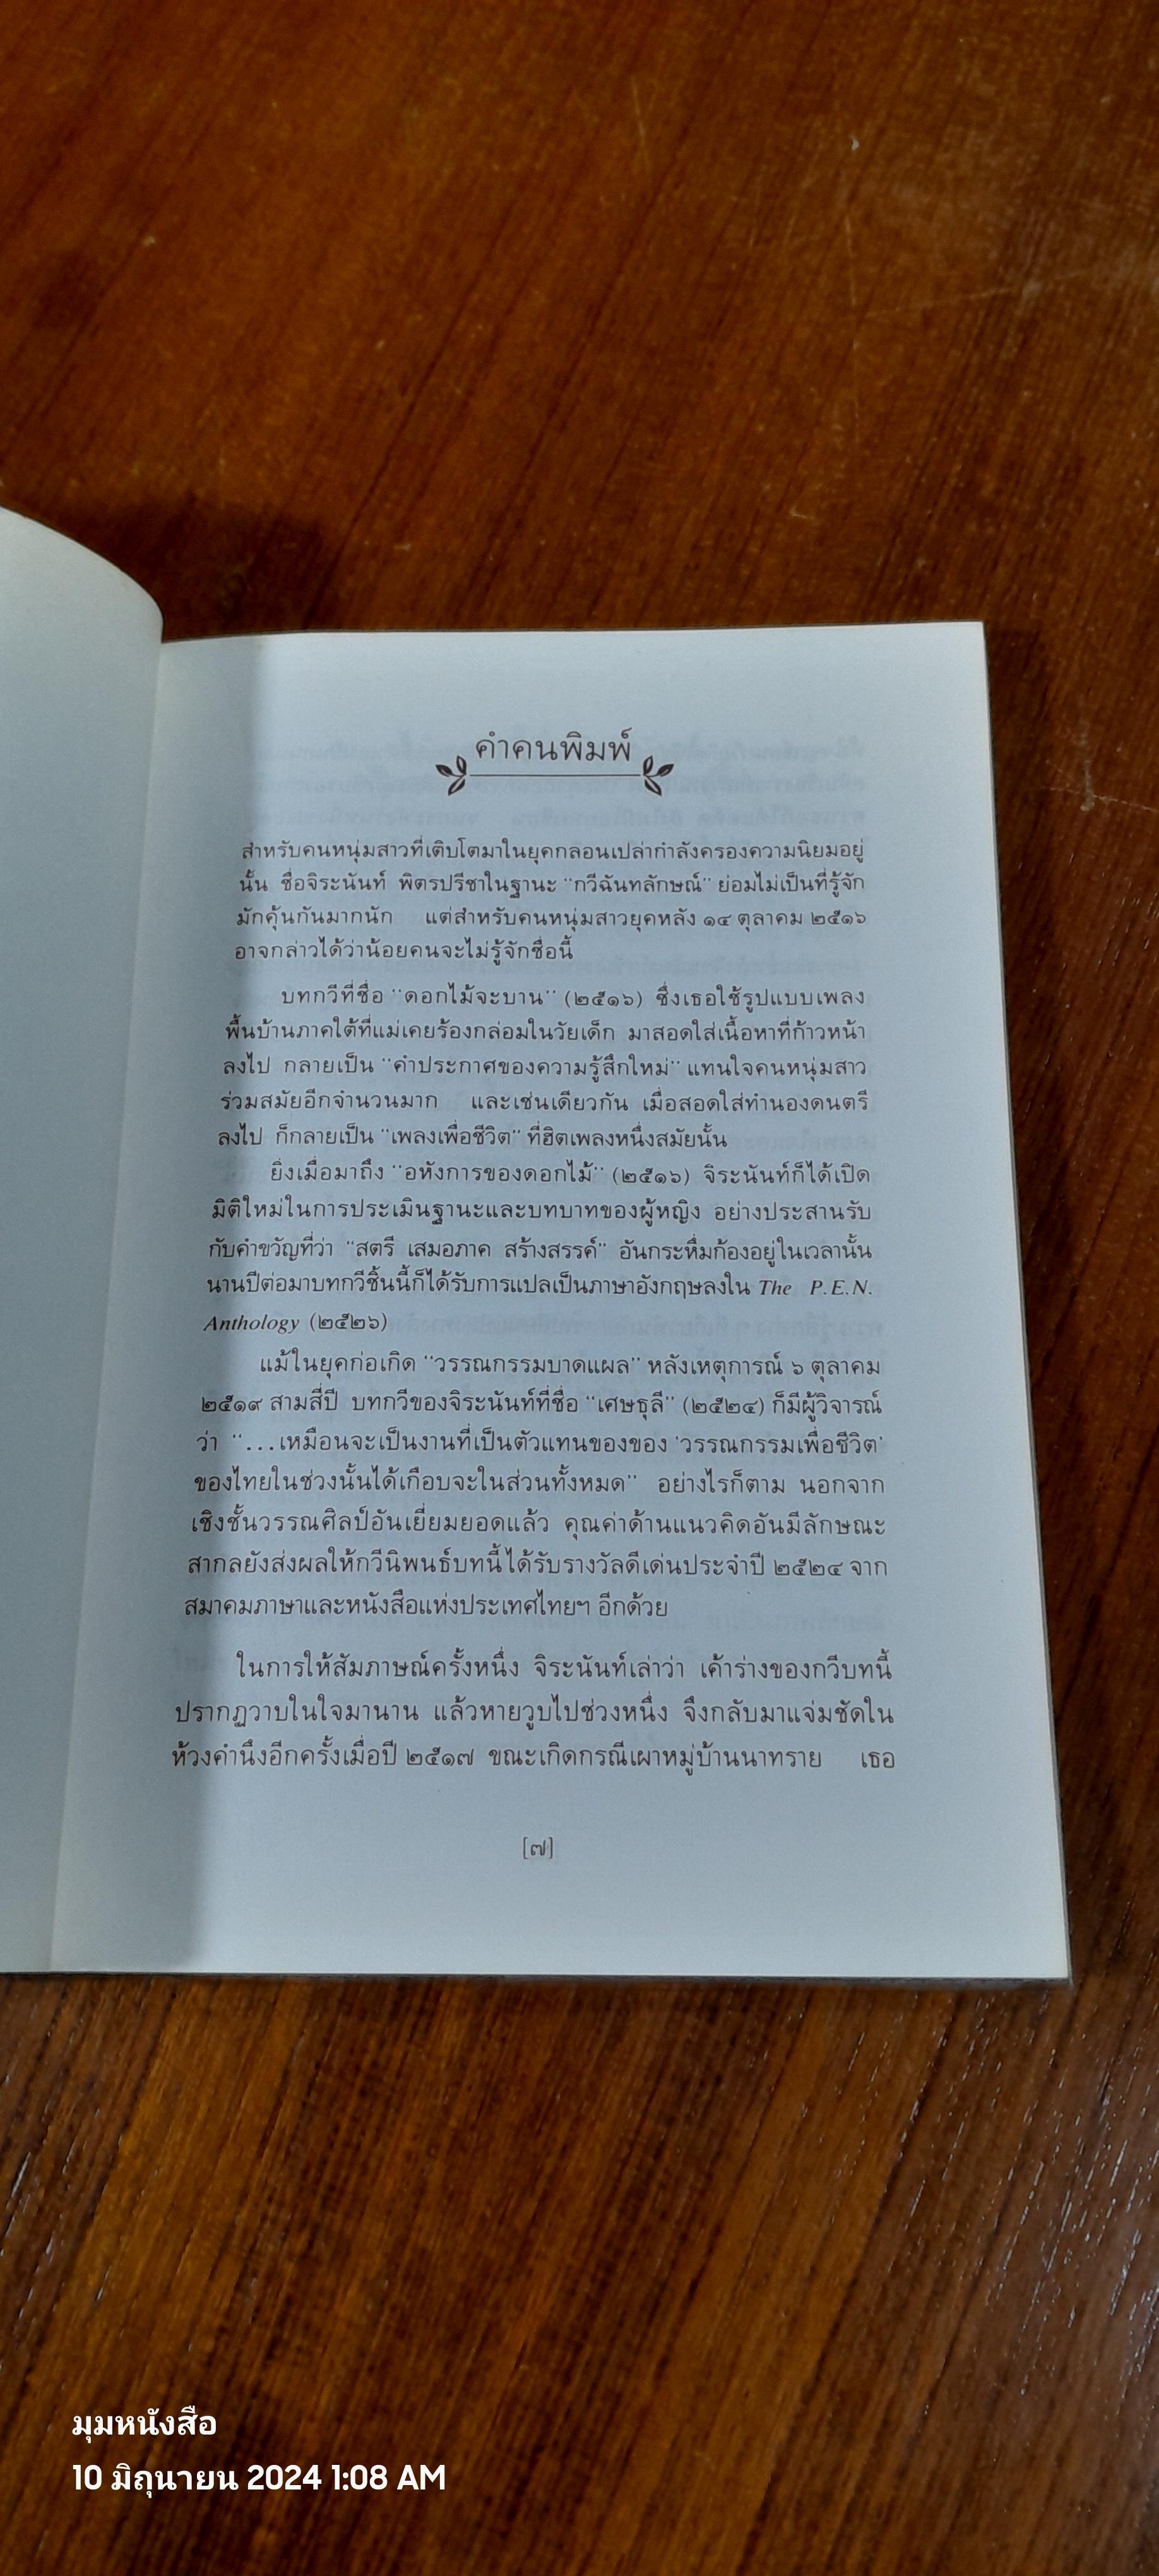 คำคนพิมพ์
สำหรับคนหนุ่มสาวที่เติบโตมาในยุคกลอนเปล่ากำลังครองความนิยมอยู่
นั้น ชื่อจิระนันท์ พิตรปรีชาในฐานะ "กวีฉันทลักษณ์" ย่อมไม่เป็นที่รู้จัก
มักคุ้นกันมากนัก แต่สำหรับคนหนุ่มสาวยุคหลัง ๑๔ ตุลาคม ๒๕๑๖
อาจกล่าวได้ว่าน้อยคนจะไม่รู้จักชื่อนี้
บทกวีที่ชื่อ "ดอกไม้จะบาน" (๒๕๑๖) ซึ่งเธอใช้รูปแบบเพลง
พื้นบ้านภาคใต้ที่แม่เคยร้องกล่อมในวัยเด็ก มาสอดใส่เนื้อหาที่ก้าวหน้า
ลงไป กลายเป็น "คำประกาศของความรู้สึกใหม่" แทนใจคนหนุ่มสาว
ร่วมสมัยอีกจำนวนมาก และเช่นเดียวกัน เมื่อสอดใส่ทำนองดนตรี
ลงไป ก็กลายเป็น "เพลงเพื่อชีวิต" ที่ฮิตเพลงหนึ่งสมัยนั้น
ยิ่งเมื่อมาถึง "อหังการของดอกไม้" (๒๕๑๖) จิระนันท์ก็ได้เปิด
มิติใหม่ในการประเมินฐานะและบทบาทของผู้หญิง อย่างประสานรับ
กับคำขวัญที่ว่า "สตรี เสมอภาค สร้างสรรค์" อันกระหึ่มก้องอยู่ในเวลานั้น
นานปีต่อมาบทกวีชิ้นนี้ก็ได้รับการแปลเป็นภาษาอังกฤษลงใน The P.E.N.
Anthology (๒๕๒๖)
แม้ในยุคก่อเกิด "วรรณกรรมบาดแผล" หลังเหตุการณ์ ๖ ตุลาคม
๒๕๑๙ สามสี่ปี บทกวีของจิระนันท์ที่ชื่อ "เศษธุลี" (๒๕๒๔) ก็มีผู้วิจารณ์
ว่า "...เหมือนจะเป็นงานที่เป็นตัวแทนของของ 'วรรณกรรมเพื่อชีวิต'
ของไทยในช่วงนั้นได้เกือบจะในส่วนทั้งหมด" อย่างไรก็ตาม นอกจาก
เชิงชั้นวรรณศิลป์อันเยี่ยมยอดแล้ว คุณค่าด้านแนวคิดอันมีลักษณะ
สากลยังส่งผลให้กวีนิพนธ์บทนี้ได้รับรางวัลดีเด่นประจำปี ๒๕๒๔ จาก
สมาคมภาษาและหนังสือแห่งประเทศไทยฯ อีกด้วย
ในการให้สัมภาษณ์ครั้งหนึ่ง จิระนันท์เล่าว่า เค้าร่างของกวีบทนี้
ปรากฏวาบในใจมานาน แล้วหายวูบไปช่วงหนึ่ง จึงกลับมาแจ่มชัดใน
ห้วงคำนึงอีกครั้งเมื่อปี ๒๕๑๗ ขณะเกิดกรณีเผาหมู่บ้านนาทราย เธอ
[๗]
มุมหนังสือ
10 มิถุนายน 2024 1:08 AM